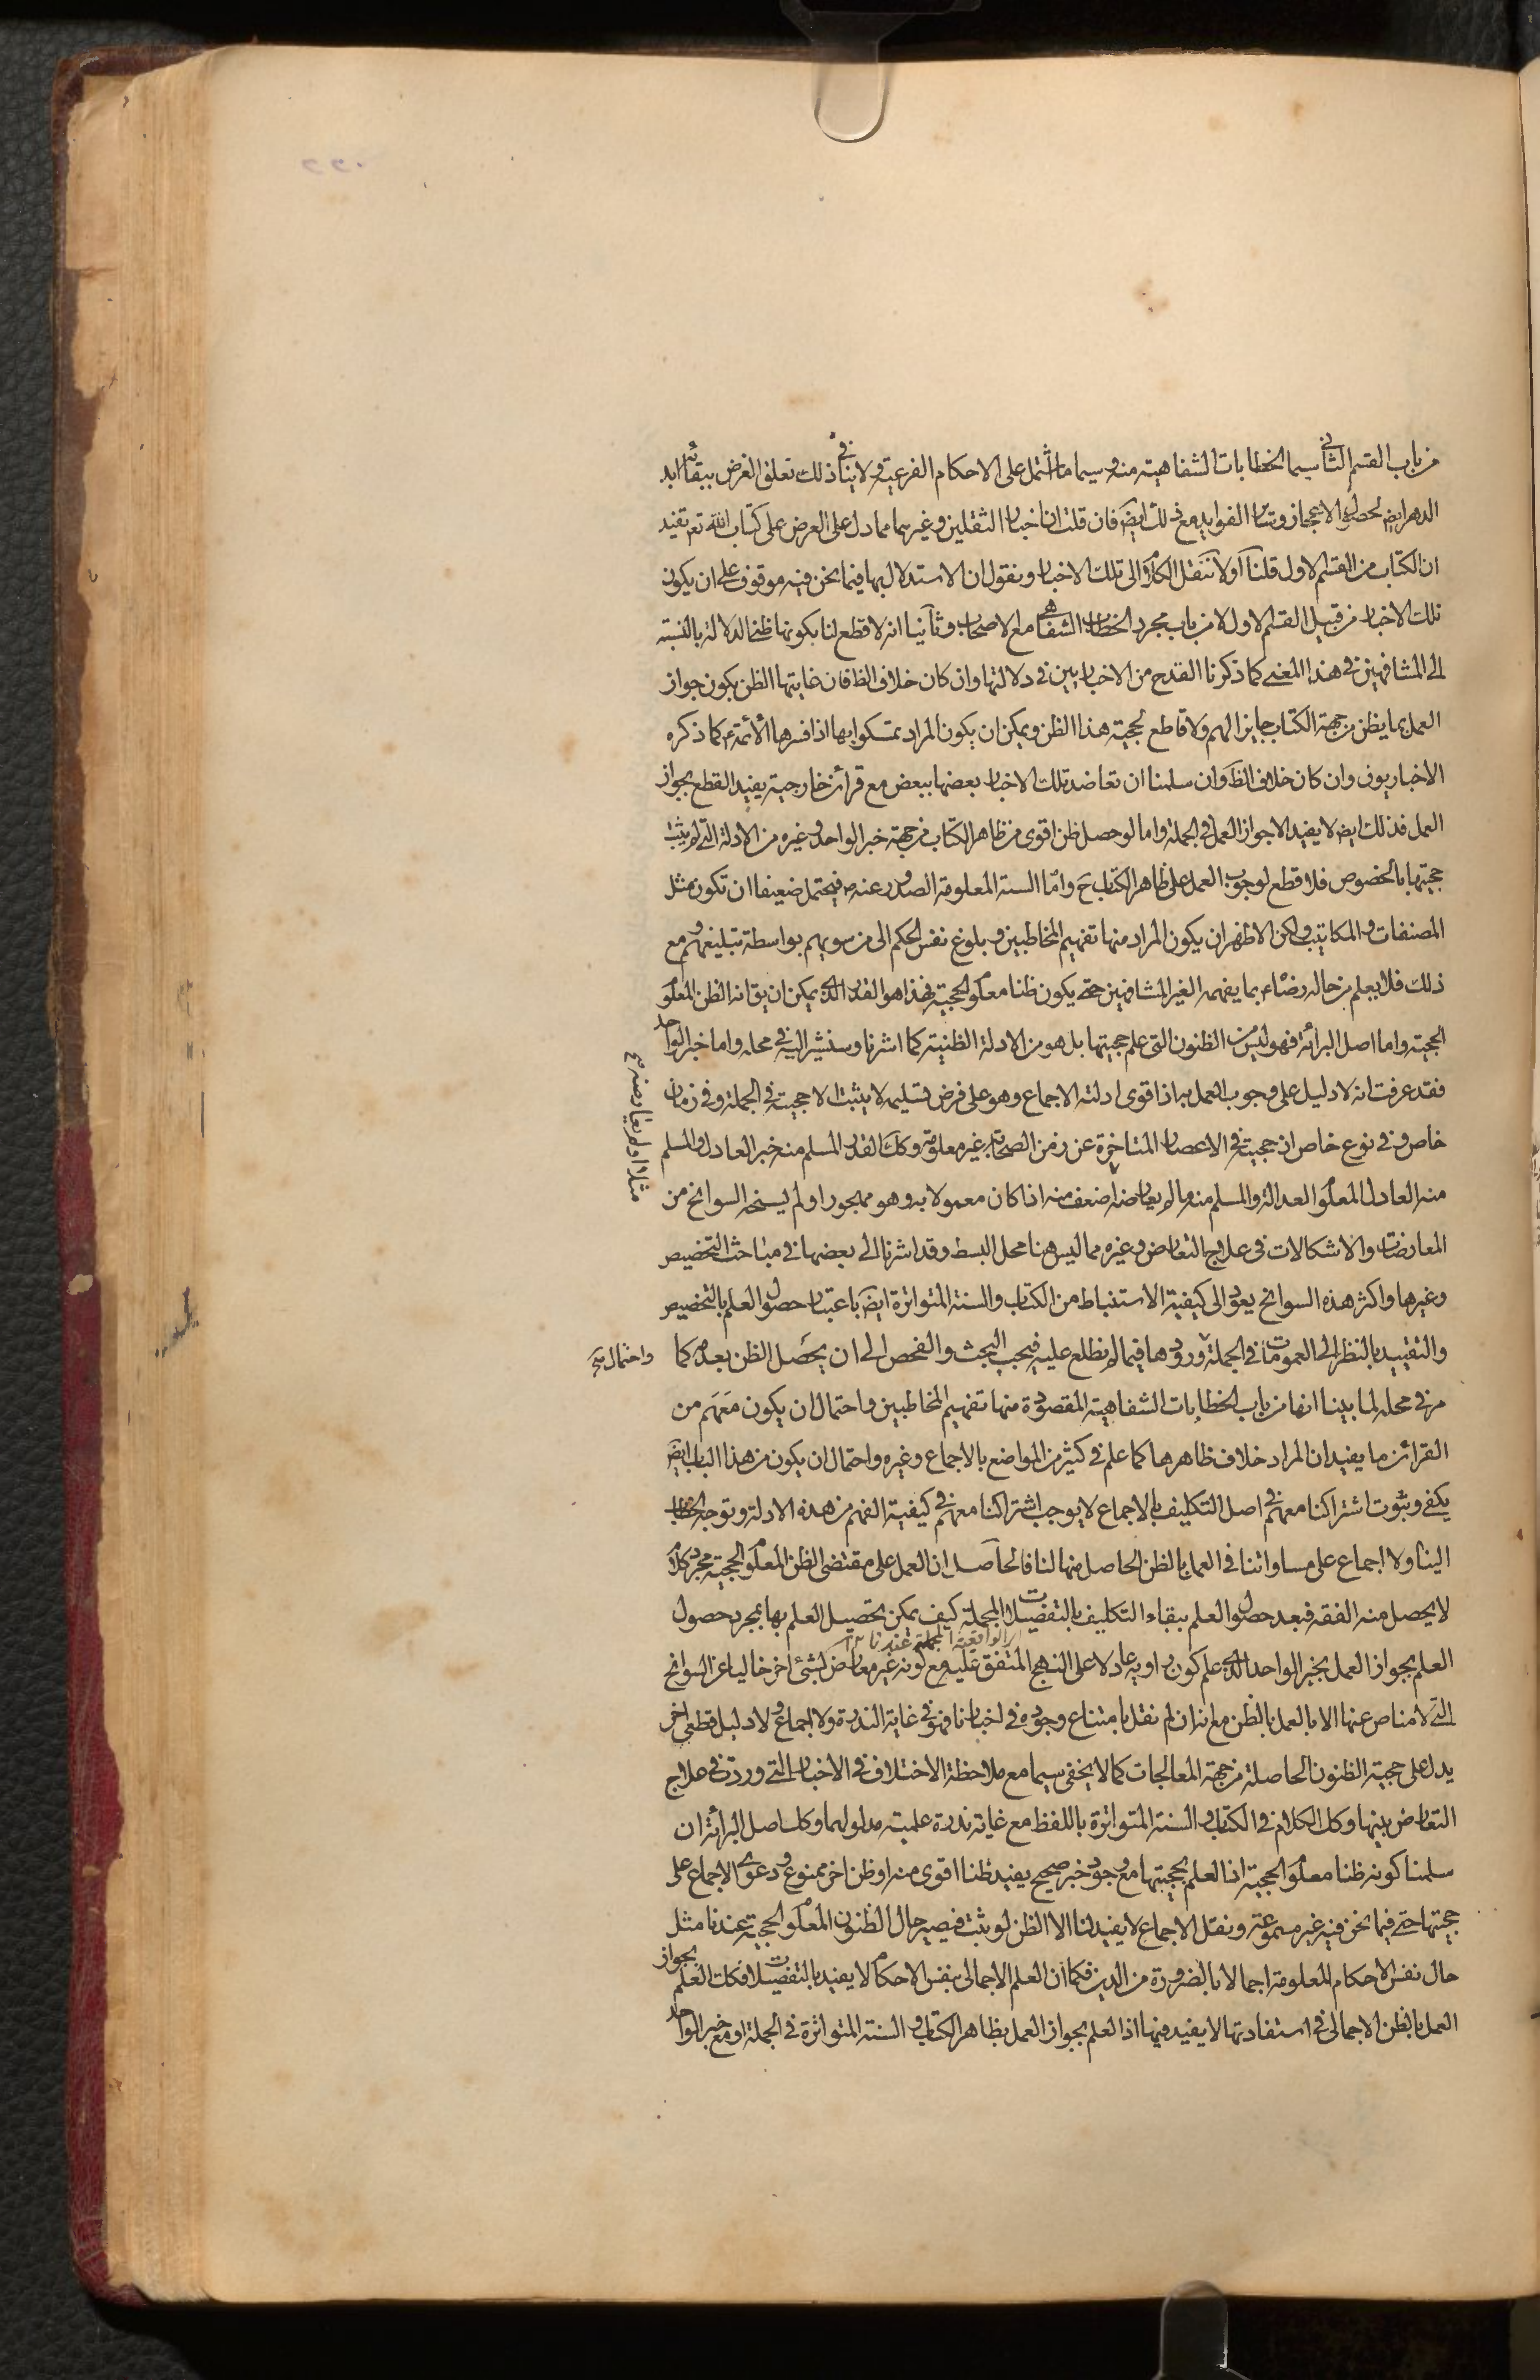 من باب القسم الثاني سيما الخطابات الشفاهية منه وسيما ما اشتمل على الاحكام الفرعية ولا ينافي ذلك تعلق الغرض ببقائه ابد
الدهر ايض لحصول الاعجاز وساير الفوايد مع ذلك ايضا فان قلت ان اخبار الثقلين وغيرهما مما دل على العرض على كتاب الله تع تفيد
ان الكتاب من القسم الاول قلنا اولا ننقل الكلام الى تلك الاخبار ونقول ان الاستدلال بها فيما نحن فيه موقوف على ان يكون
تلك الاخبار من قبيل القسم الاول لا من باب مجرد الخطاب الشفاهي مع الاصحاب وثانيا انه لا قطع لنا بكونها ظني الدلالة بالنسبة
الى المشافهين في هذا المعنى كما ذكرنا القدح من الاخباريين في دلالتها وان كان خلاف الظ فان غايتها الظن بكون جواز
العمل بما يظن من جهة الكتاب جايز الهم ولا قاطع لحجية هذا الظن ويمكن ان يكون المراد تمسكوا بها اذا فسرها الائمة ع كما ذكره
الاخباريون وان كان خلاف الظ وان سلمنا ان تعاضد تلك الاخبار بعضها ببعض مع قرائن خارجية يفيد القطع بجواز
العمل فذلك ايض لا يفيد الا جواز العمل في الجملة واما لو حصل ظن اقوى من ظاهر الكتاب من جهة خبر الواحد وغيره من الادلة التي لم يثبت
حجيتها بالخصوص فلا قطع لوجوب العمل على ظاهر الكتاب ح واما السنة المعلومة الصدور عنه ص فيحتمل ضعيفا ان تكون مثل
المصنفات والمكاتيب ولكن الاظهر ان يكون المراد منها تفهيم المخاطبين وبلوغ نفس الحكم الى من سويهم بواسطة تبليغهم ومع
ذلك فلا يعلم من حاله رضاه بما يفهمه الغير المشافهين حتى يكون ظنا معلوم الحجية فهذا هو القدر الذي يمكن ان يق انه الظن المعلوم
الحجية واما اصل البرائة فهو ليس من الظنون التي علم حجيتها بل هو من الادلة الظنية كما اشرنا وسنشير اليه في محله واما خبر الواحد
فقد عرفت انه لا دليل على وجوب العمل به اذ اقوى ادلته الاجماع وهو على فرض تسليمه لا يثبت الا حجيته في الجملة وفي زمان
خاص وفي نوع خاص اذ حجيته في الاعصار المتاخرة عن زمن الصحابة غير معلومة وكك القدر المسلم منه خبر العادل والمسلم
منه العادل المعلوم العدالة والمسلم منه ما لم يعارضه اضعف منه اذا كان معمولا به وهو مهجور او لم يسنحه السوانح من
المعارضات والاشكالات في علاج التعارض وغيره مما ليس هنا محل البسط وقد اشرنا الى بعضها في مباحث التخصيص
وغيرها واكثر هذه السوانح يعود الى كيفية الاستنباط من الكتاب والسنة المتواترة ايض باعتبار حصول العلم بالتخصيص
والتقييد بالنظر الى العمومات في الجملة ورودها فيما لم نطلع عليه فيجب البحث والفحص الى ان يحصل الظن بعدمه كما
واحتمال
مر في محله لما بينا انها من باب الخطابات الشفاهية المقصودة منها تفهيم المخاطبين واحتمال ان يكون معهم من
القرائن ما يفيد ان المراد خلاف ظاهرها كما علم في كثير من المواضع بالاجماع وغيره واحتمال ان يكون من هذا الباب ايض
يكفي وثبوت اشتراكنا معهم في اصل التكليف بالاجماع لا يوجب اشتراكنا معهم في كيفية الفهم من هذه الادلة وتوجه الخطاب
الينا ولا اجماع على مساواتنا في العمل بالظن الحاصل منها لنا فالحاصل ان العمل على مقتضى الظن المعلوم الحجية مجرد كلام
لا يحصل منه الفقه فبعد حصول العلم ببقاء التكليف بالتفصيلات المجملة كيف يمكن تحصيل العلم بها بمجرد حصول
الواقعية المجملة عندنا
العلم بجواز العمل بخبر الواحد الذي علم كون راويه عادلا على النهج المتفق عليه مع كونه غير معارض لشئ اخر خاليا عن السوانح
التي لا مناص عنها الا بالعمل بالظن مع انه ان لم نقل بامتناع وجوده في اخبارنا فهو في غاية الندرة ولا اجماع ولا دليل قطعي اخر
يدل على حجية الظنون الحاصلة من جهة المعالجات كما لا يخفى سيما مع ملاحظة الاختلاف في الاخبار التي وردت في علاج
التعارض بينها وكك الكلام في الكتاب والسنة المتواترة باللفظ مع غاية ندرة علمية مدلولهما وكك اصل البرائة ان
سلمنا كونه ظنا معلوم الحجية اذ العلم بحجيتها مع وجود خبر صحيح يفيد ظنا اقوى منه او ظن اخر ممنوع ودعوى الاجماع على
حجيتها حتى فيما نحن فيه غير مسموعة ونقل الاجماع لا يفيد لنا الا الظن لو ثبت فيصير حال الظنون المعلوم الحجية عندنا مثل
حال نفس الاحكام المعلومة اجمالا بالضرورة من الدين فكما ان العلم الاجمالي بنفس الاحكام لا يفيد بالتفصيلات فكك العلم بجواز
العمل بالظن الاجمالي في استفادتها لا يفيد فيها اذ العلم بجواز العمل بظاهر الكتاب والسنة المتواترة في الجملة او مع خبر الواحد